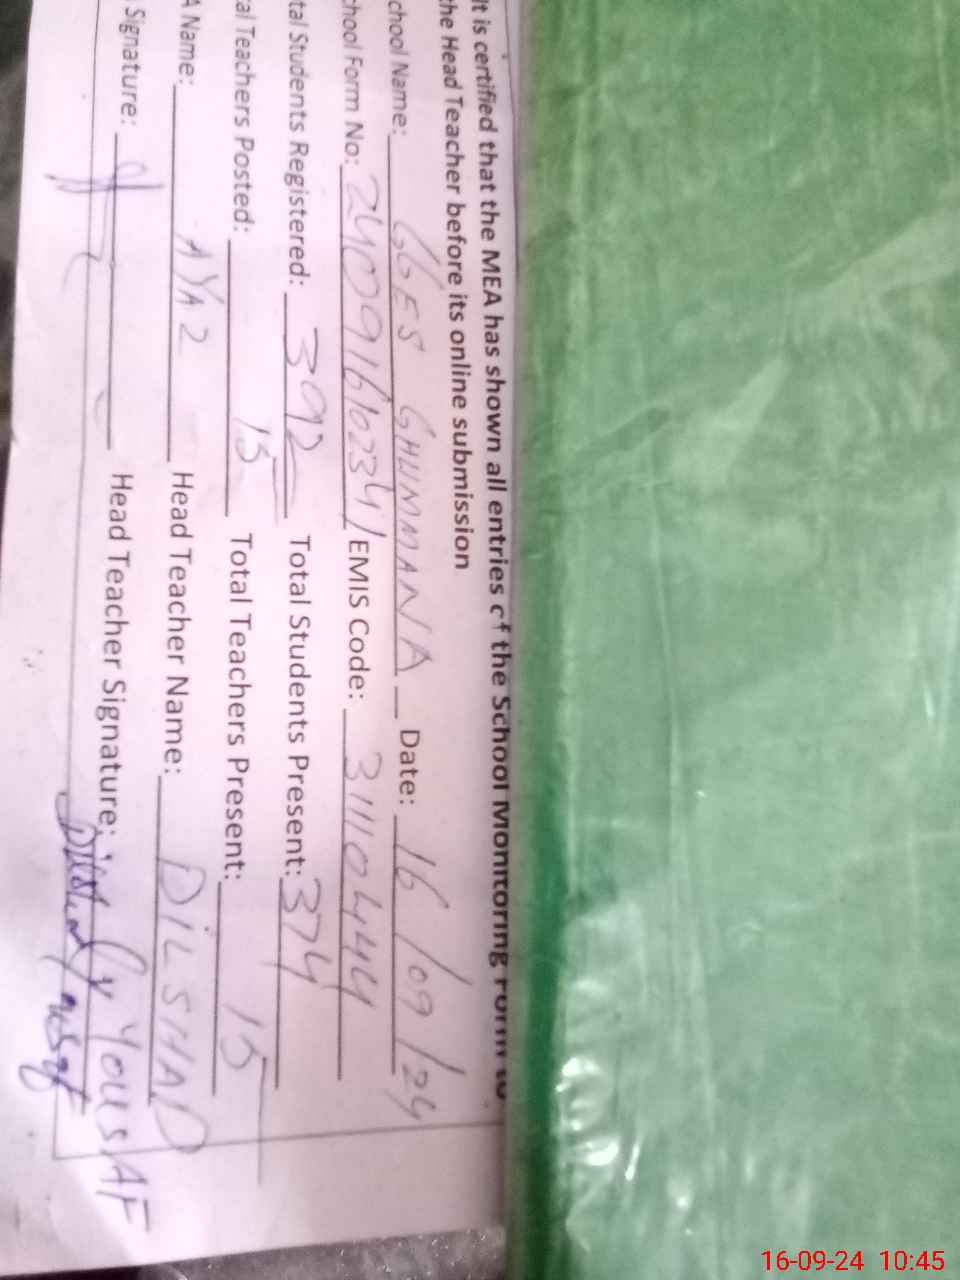 It is certified that the MEA has shown all entries of the School Monitoring Form to
the Head Teacher before its online submission
chool Name: GGES GHUMMANA Date: 16/09/24
chool Form No: 2400916102341 EMIS Code: 31110444
tal Students Registered: 392 Total Students Present: 374
al Teachers Posted: 15 Total Teachers Present: 15
A Name: AYAZ Head Teacher Name: DILSHAD
YOUSAF
Signature: Head Teacher Signature:
16-09-24 10:45